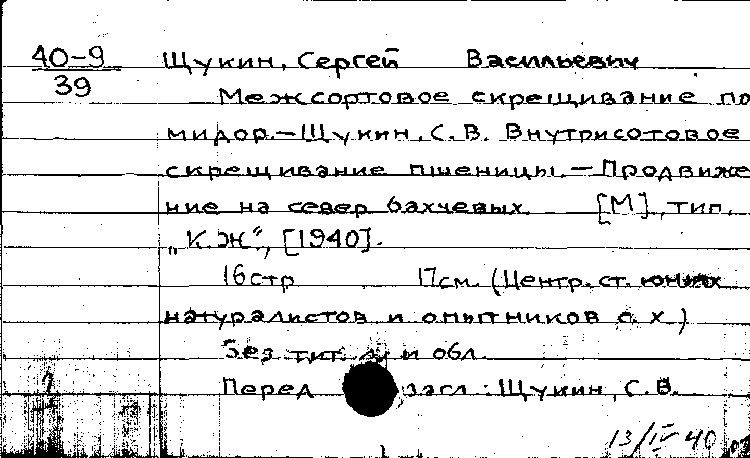 40-9
39
Щукин, Сергей Васильевич
Межсортовое скрещивание по
мидор.—Щукин, С. В. Внутрисотовое
скрещивание пшеницы.—Продвиже
ние на север бахчевых [М], тип.
„К. Ж“, [1940].
16стр 17см. (Центр. ст. юных
натуралистов и опытников с. х.)
Без тит. л. и обл.
Перед загл: Щукин, С. В.
13/IV 40